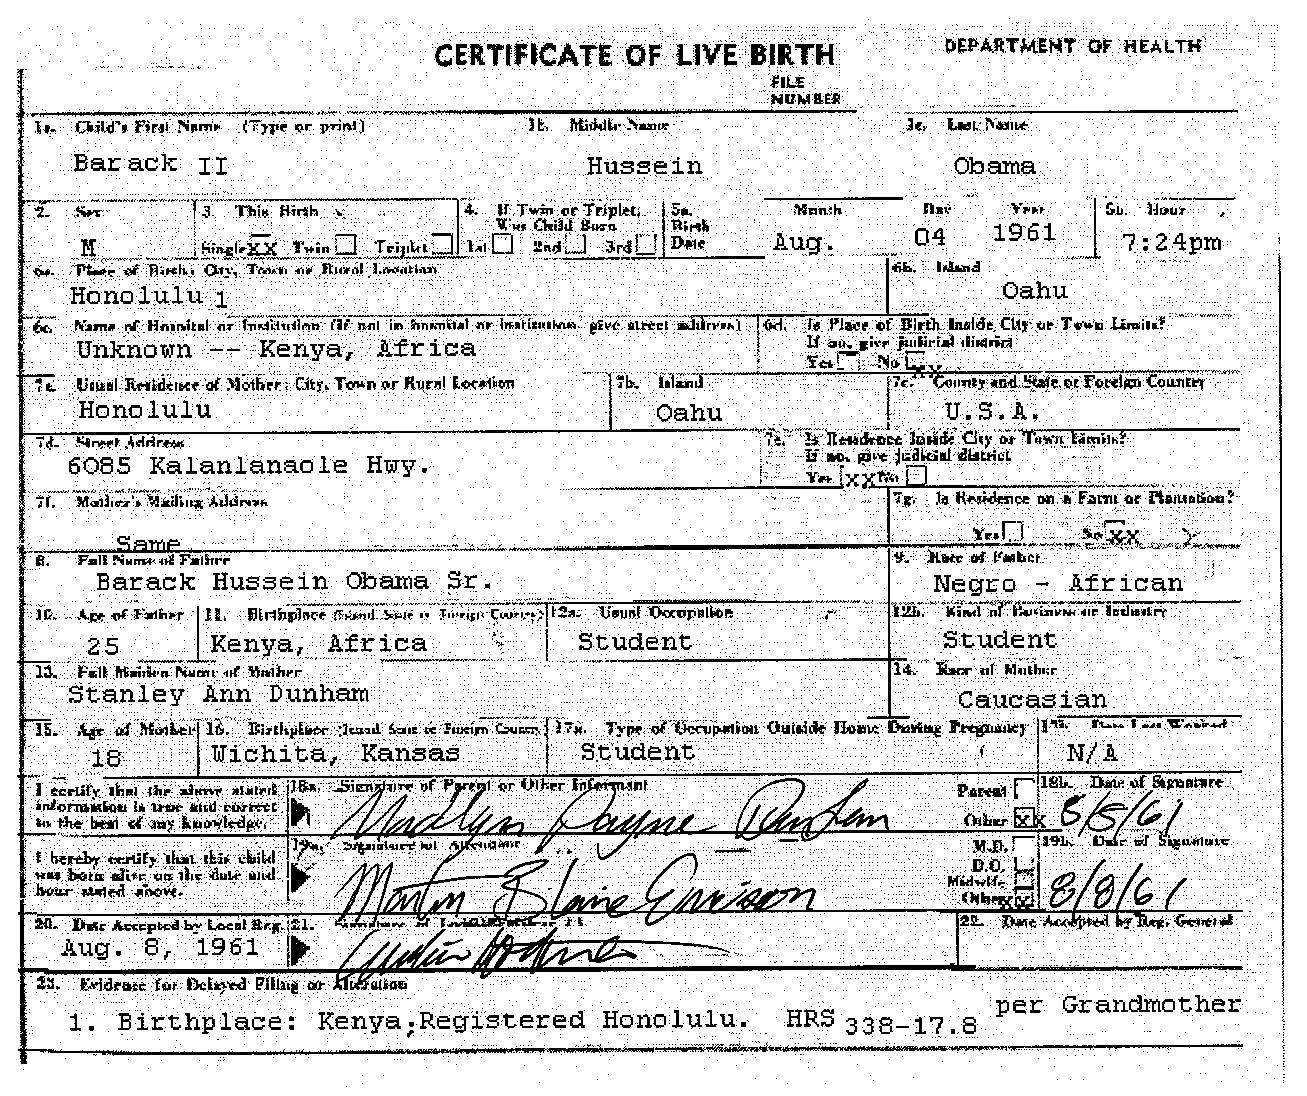 CERTIFICATE OF LIVE BIRTH DEPARTMENT OF HEALTH
FILE
NUMBER
1a. Child's First Name (Type or print) 1b. Middle Name 1c. Last Name
Barack II Hussein Obama
2. Sex 3. This Birth 4. If Twin or Triplet, Was Child Born 5a. Birth Date Month Day Year 5b. Hour
M Single XX Twin Triplet 1st 2nd 3rd Aug. 04 1961 7:24pm
6a. Place of Birth: City, Town or Rural Location 6b. Island
Honolulu 1 Oahu
6c. Name of Hospital or Institution (If not in hospital or institution, give street address) 6d. Is Place of Birth Inside City or Town Limits?
If no, give judicial district
Unknown -- Kenya, Africa Yes No XX
7a. Usual Residence of Mother: City, Town or Rural Location 7b. Island 7c. County and State or Foreign Country
Honolulu Oahu U.S.A.
7d. Street Address 7e. Is Residence Inside City or Town Limits?
If no, give judicial district
6085 Kalanlanaole Hwy. Yes XX No
7f. Mother's Mailing Address 7g. Is Residence on a Farm or Plantation?
Same Yes No XX
8. Full Name of Father 9. Race of Father
Barack Hussein Obama Sr. Negro - African
10. Age of Father 11. Birthplace (Island, State or Foreign Country) 12a. Usual Occupation 12b. Kind of Business or Industry
25 Kenya, Africa Student Student
13. Full Maiden Name of Mother 14. Race of Mother
Stanley Ann Dunham Caucasian
15. Age of Mother 16. Birthplace (Island, State or Foreign Country) 17a. Type of Occupation Outside Home During Pregnancy 17b. Date Last Worked
18 Wichita, Kansas Student N/A
I certify that the above stated information is true and correct to the best of my knowledge. 18a. Signature of Parent or Other Informant Parent Other XX 18b. Date of Signature
Madelyn Payne Dunham 8/5/61
I hereby certify that this child was born alive on the date and hour stated above. 19a. Signature of Attendant M.D. D.O. Midwife Other XX 19b. Date of Signature
8/8/61
20. Date Accepted by Local Reg. 21. Signature of Local 22. Date Accepted by Reg. General
Aug. 8, 1961
23. Evidence for Delayed Filing or Alteration
1. Birthplace: Kenya;Registered Honolulu. HRS 338-17.8 per Grandmother